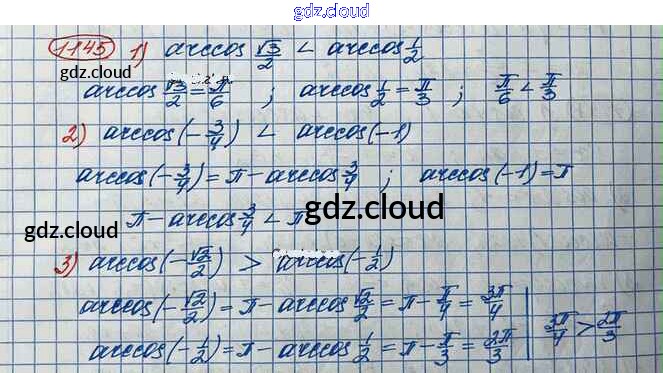 gdz.cloud
1145 1) arccos √3/2 < arccos 1/2
gdz.cloud
arccos √3/2 = π/6 ; arccos 1/2 = π/3 ; π/6 < π/3
2) arccos(-3/4) < arccos(-1)
arccos(-3/4) = π - arccos 3/4 ; arccos(-1) = π
π - arccos 3/4 < π
gdz.cloud
gdz.cloud
3) arccos(-√2/2) > arccos(-1/2)
arccos(-√2/2) = π - arccos √2/2 = π - π/4 = 3π/4
arccos(-1/2) = π - arccos 1/2 = π - π/3 = 2π/3 | 3π/4 > 2π/3